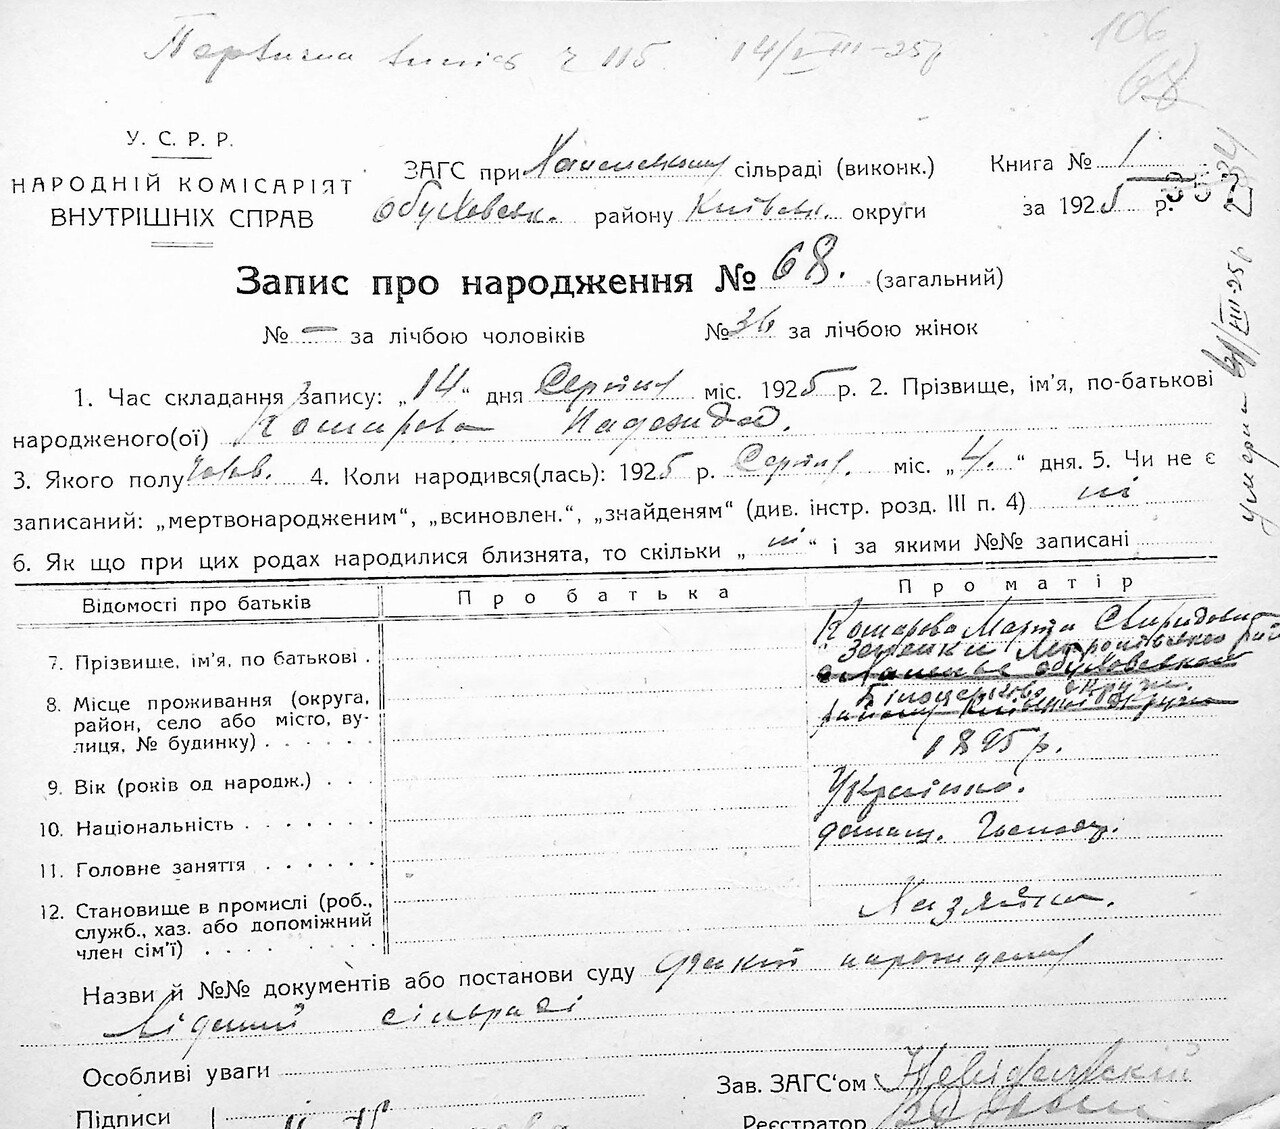 Первична випись ч 115. 14/VIII-25р
106
68
У. С. Р. Р.
НАРОДНІЙ КОМІСАРІЯТ
ВНУТРІШНІХ СПРАВ
ЗАГС при сільраді (виконк.)
Обуховськ. району Київськ. округи
Книга № 1
за 1925 р.
Запис про народження № 68. (загальний)
№ — за лічбою чоловіків №36 за лічбою жінок
1. Час складання запису: „14“ дня Серпня міс. 1925 р. 2. Прізвище, ім’я, по-батькові
народженого(ої) Комарова Надежда.
3. Якого полу 4. Коли народився(лась): 1925 р. Серпня. міс. „4.“ дня. 5. Чи не є
записаний: „мертвонародженим“, „всиновлен.“, „знайденям“ (див. інстр. розд. III п. 4) ні
6. Як що при цих родах народилися близнята, то скільки „ні“ і за якими №№ записані
Умерла VIII-25р
Відомості про батьків Про батька Про матір
7. Прізвище, ім’я, по батькові . Комарова Марта Свиридовна
8. Місце проживання (округа,
район, село або місто, ву-
лиця, № будинку) . . . . . .
Білоцерківсько округи.
9. Вік (років од народж.) . . . 1895 р.
10. Національність . . . . . . . Українка.
11. Головне заняття . . . . . . домаш. Господар.
12. Становище в промислі (роб.,
служб., хаз. або допоміжний
член сім’ї) . . . . . . . . Хазяйка.
Назви й №№ документів або постанови суду народження
сільради
Особливі уваги
Зав. ЗАГС’ом
Підписи
Реєстратор